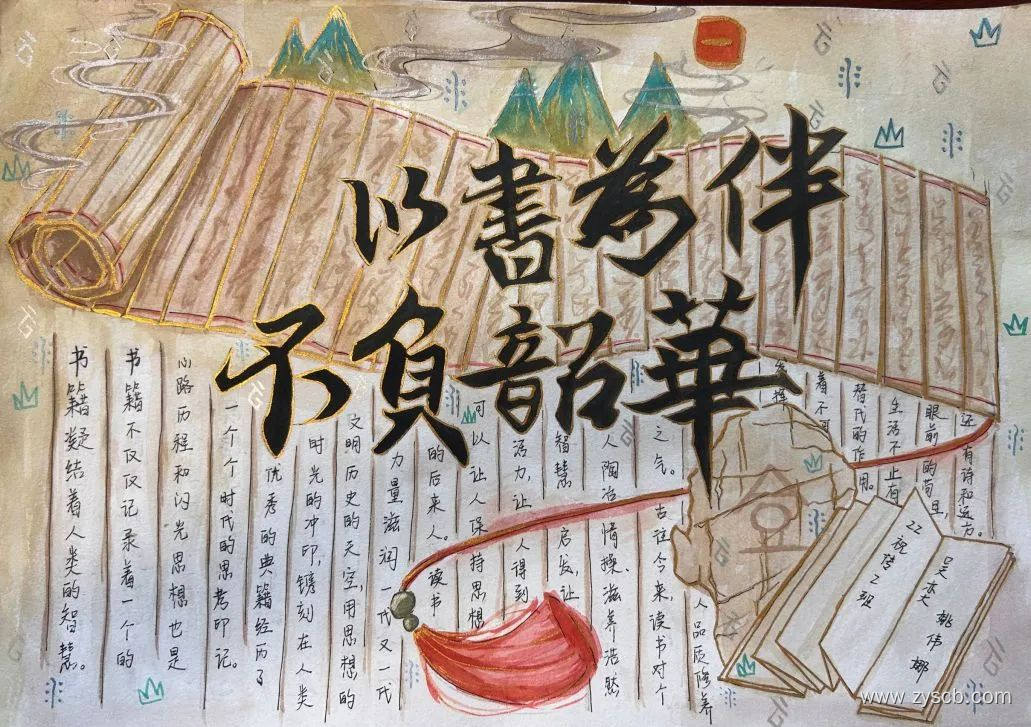 以書為伴
不負韶華
书籍凝结着人类的智慧。
书籍不仅仅记录着一个的
心路历程和闪光思想也是
一个个时代的思考印记。
优秀的典籍经历了
时光的冲印,镌刻在人类
文明历史的天空,用思想的
力量滋润一代又一代
的后来人。读书
可以让人保持思想
活力,让人得到
智慧启发,让
人陶冶情操、滋养浩然
之气。古往今来,读书对个
人品质修养
着不可
替代的作用。
生活不止有
眼前的苟且
还有诗和远方。
姚伟娜
www.zyscb.com